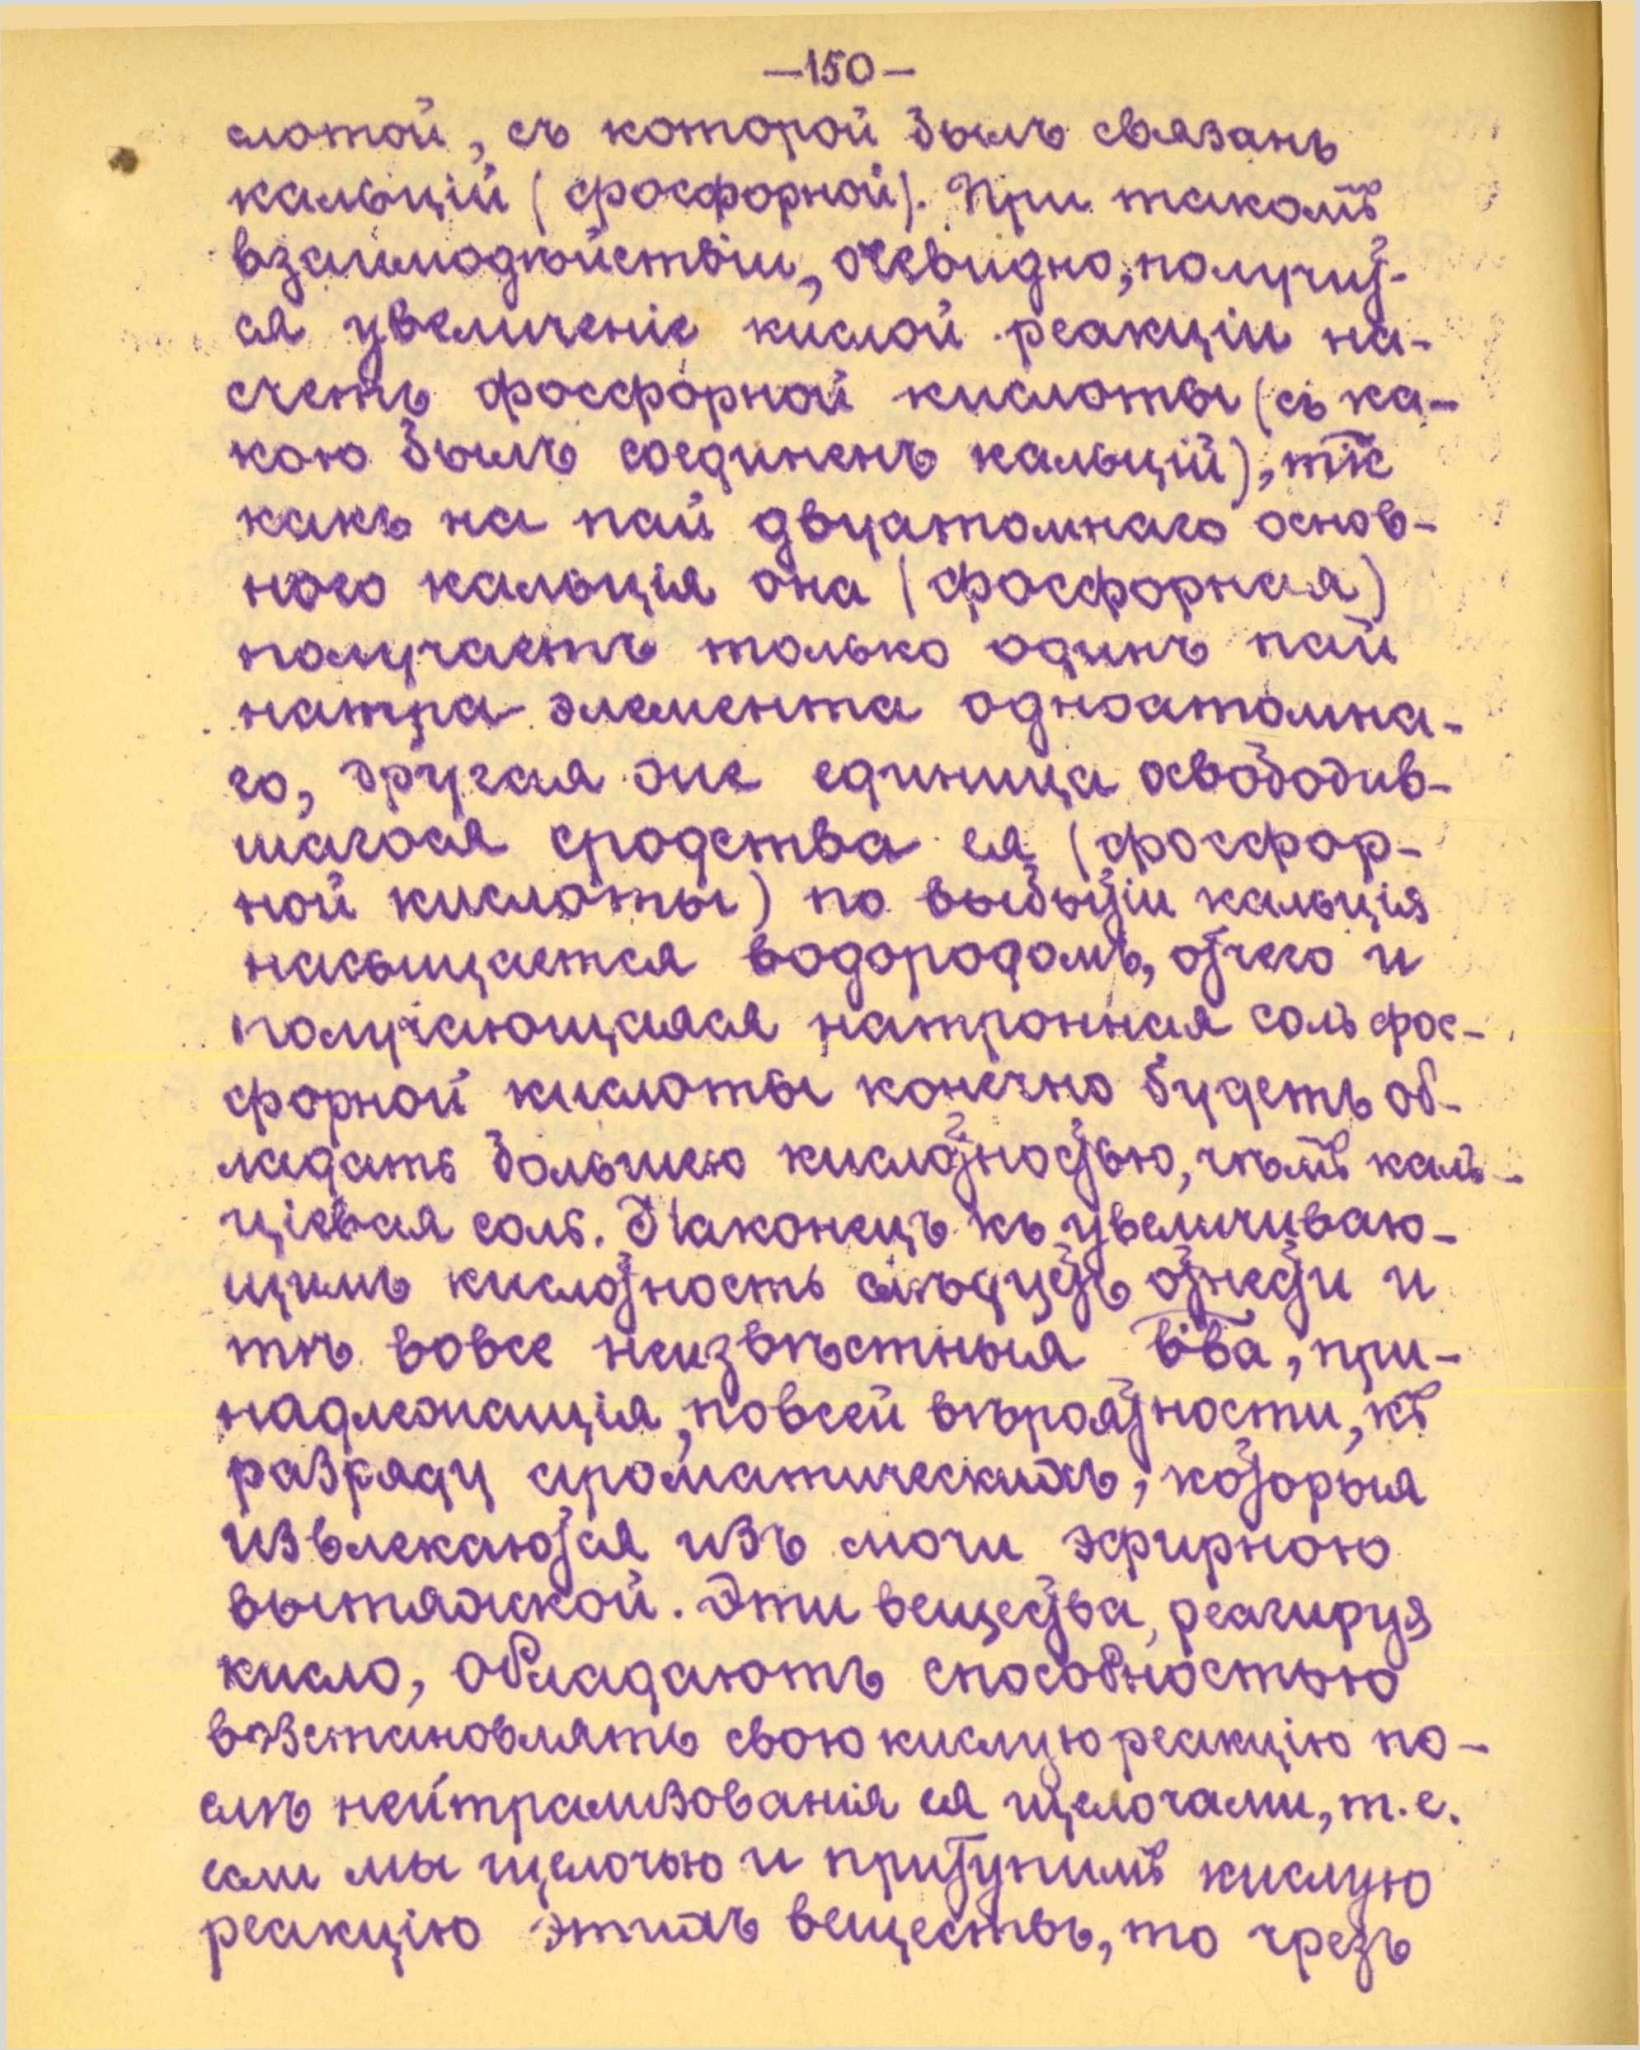 —150—
слотой, съ которой былъ связанъ
кальцій (фосфорной). При такомъ
взаимодѣйствіи, очевидно, получит-
ся увеличеніе кислой реакціи на-
счетъ фосфорной кислоты (съ ка-
кою былъ соединенъ кальцій), такъ
какъ на пай двуатомнаго основ-
ного кальція она (фосфорная)
получаетъ только одинъ пай
натра элемента одноатомна-
го, другая же единица освободив-
шагося сродства ея (фосфор-
ной кислоты) по выбытіи кальція
насыщается водородомъ, отчего и
получающаяся натронная соль фос-
форной кислоты конечно будетъ об-
ладать большею кислотностью, чѣмъ каль-
ціевая соль. Наконецъ къ увеличиваю-
щимъ кислотность слѣдуетъ отнести и
тѣ вовсе неизвѣстныя в-ва, при-
надлежащія, повсей вѣроятности, къ
разряду ароматическихъ, которыя
извлекаются изъ мочи эфирною
вытяжской. Эти вещества, реагируя
кисло, обладаютъ способностью
возстановлять свою кислую реакцію по-
слѣ нейтрализованія ея щелочами, т.е.
если мы щелочью и притупимъ кислую
реакцію этихъ веществъ, то чрезъ